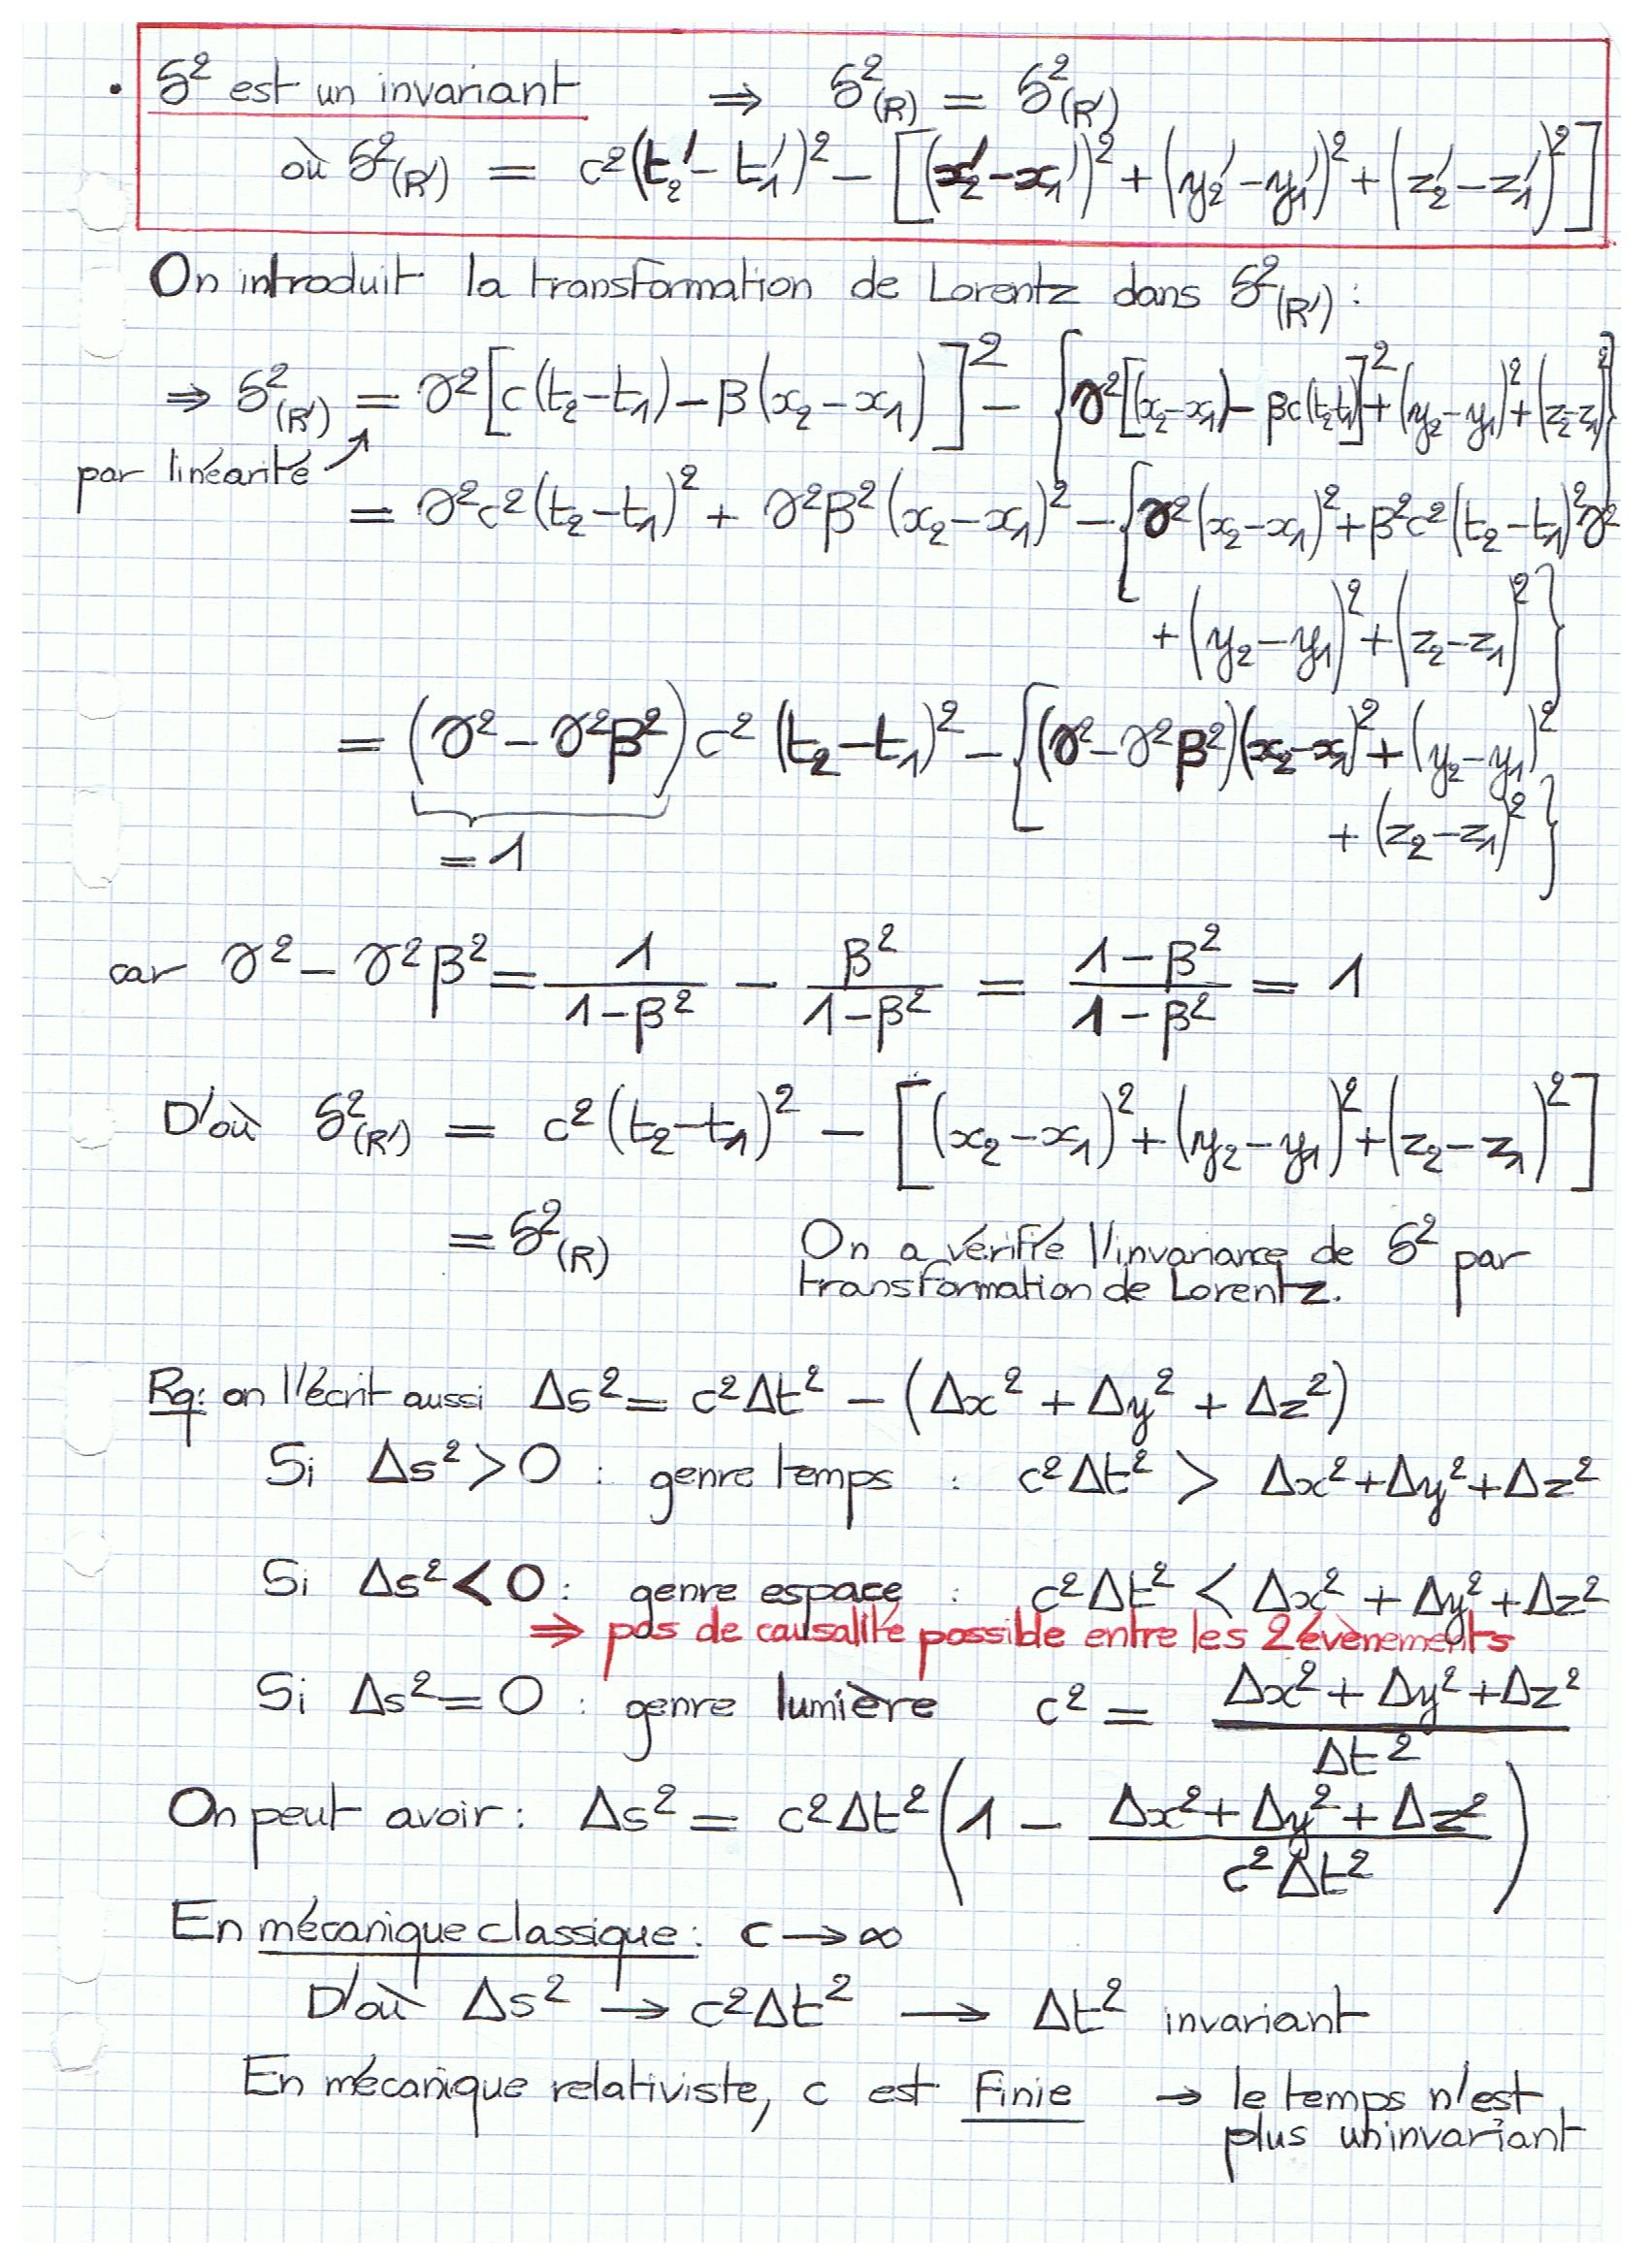 • S²est un invariant ⇒ S²(R) = S²(R')
où S²(R') = c²(t₂'-t₁')² - [(x₂'-x₁')² + (y₂'-y₁')² + (z₂'-z₁')²]
On introduit la transformation de Lorentz dans S²(R') :
⇒ S²(R') = γ²[c(t₂-t₁) - β(x₂-x₁)]² - {γ²[(x₂-x₁) - βc(t₂-t₁)]² + (y₂-y₁)² + (z₂-z₁)²}
par linéarité ↗
= γ²c²(t₂-t₁)² + γ²β²(x₂-x₁)² - {γ²(x₂-x₁)² + β²c²(t₂-t₁)²γ²
+ (y₂-y₁)² + (z₂-z₁)²}
= (γ² - γ²β²)c²(t₂-t₁)² - {(γ² - γ²β²)(x₂-x₁)² + (y₂-y₁)²
+ (z₂-z₁)²}
= 1
car γ² - γ²β² = 1/(1-β²) - β²/(1-β²) = (1-β²)/(1-β²) = 1
D'où S²(R') = c²(t₂-t₁)² - [(x₂-x₁)² + (y₂-y₁)² + (z₂-z₁)²]
= S²(R) On a vérifié l'invariance de S² par
transformation de Lorentz.
Rq: on l'écrit aussi Δs² = c²Δt² - (Δx² + Δy² + Δz²)
Si Δs² > 0 : genre temps : c²Δt² > Δx² + Δy² + Δz²
Si Δs² < 0 : genre espace : c²Δt² < Δx² + Δy² + Δz²
⇒ pas de causalité possible entre les 2 évènements
Si Δs² = 0 : genre lumière c² = (Δx² + Δy² + Δz²)/Δt²
On peut avoir : Δs² = c²Δt²(1 - (Δx² + Δy² + Δz²)/(c²Δt²))
En mécanique classique : c → ∞
D'où Δs² → c²Δt² → Δt² invariant
En mécanique relativiste, c est finie → le temps n'est
plus un invariant